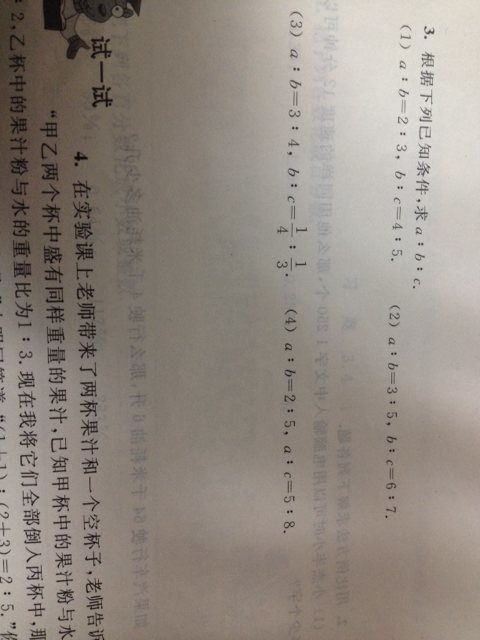 3. 根据下列已知条件,求a:b:c.
(1) a:b=2:3, b:c=4:5. (2) a:b=3:5, b:c=6:7.
(3) a:b=3:4, b:c=1/4:1/3. (4) a:b=2:5, a:c=5:8.
试一试
4. 在实验课上老师带来了两杯果汁和一个空杯子,老师告诉
“甲乙两个杯中盛有同样重量的果汁,已知甲杯中的果汁粉与水
:2,乙杯中的果汁粉与水的重量比为1:3.现在我将它们全部倒入丙杯中,那
(1+1):(2+3)=2:5.”